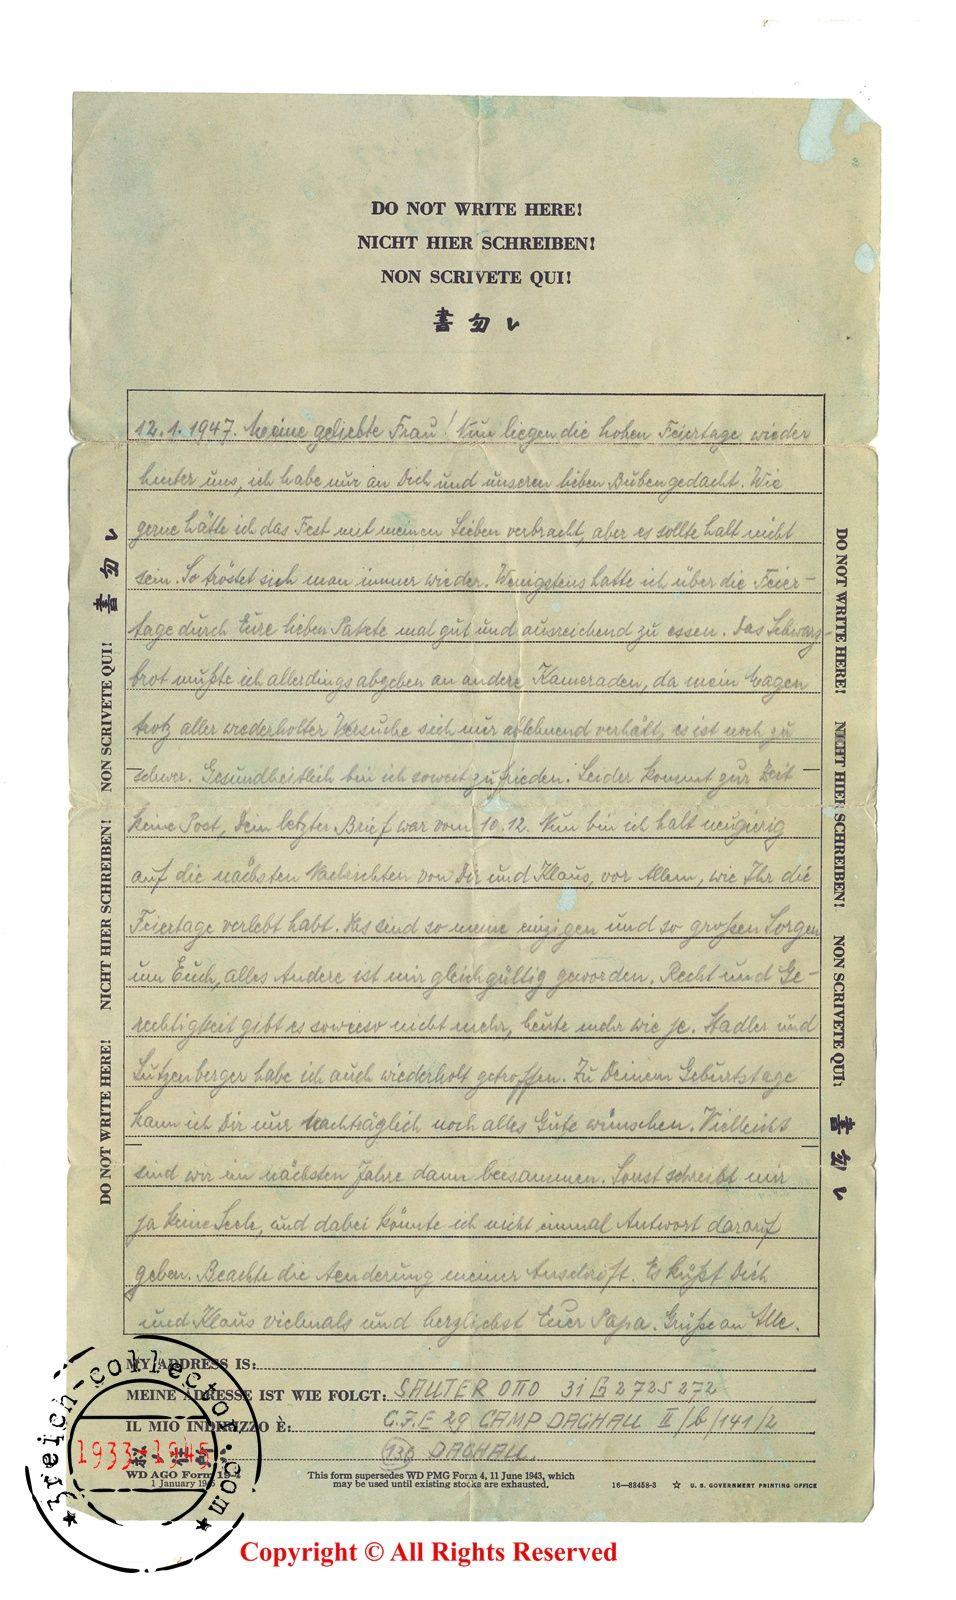 DO NOT WRITE HERE!
NICHT HIER SCHREIBEN!
NON SCRIVETE QUI!
書勿レ
12.1.1947. Meine geliebte Frau! Nun liegen die hohen Feiertage wieder
hinter uns, ich habe nur an Dich und unseren lieben Buben gedacht. Wie
gerne hätte ich das Fest mit meinen Lieben verbracht, aber es sollte halt nicht
sein. So tröstet sich man immer wieder. Wenigstens hatte ich über die Feier-
tage durch Eure lieben Pakete mal gut und ausreichend zu essen. Das Schwarz-
brot mußte ich allerdings abgeben an andere Kameraden, da mein Magen
trotz aller wiederholter Versuche sich nur ablehnend verhält, es ist noch zu
schwer. Gesundheitlich bin ich soweit zufrieden. Leider kommt zur Zeit
keine Post, Dein letzter Brief war vom 10.12. Nun bin ich halt neugierig
auf die nächsten Nachrichten von Dir und Klaus, vor Allem, wie Ihr die
Feiertage verlebt habt. Das sind so meine einzigen und so großen Sorgen
um Euch, alles Andere ist mir gleichgültig geworden. Recht und Ge-
rechtigkeit gibt es sowieso nicht mehr, heute mehr wie je. Stadler und
Lutzenberger habe ich auch wiederholt getroffen. Zu Deinem Geburtstage
kann ich Dir nur nachträglich noch alles Gute wünschen. Vielleicht
sind wir im nächsten Jahre dann beisammen. Sonst schreibt mir
ja keine Seele, und dabei könnte ich nicht einmal Antwort darauf
geben. Beachte die Aenderung meiner Anschrift. Es küßt Dich
und Klaus vielmals und herzlichst Euer Papa. Grüße an Alle.
DO NOT WRITE HERE! NICHT HIER SCHREIBEN! NON SCRIVETE QUI! 書勿レ
DO NOT WRITE HERE! NICHT HIER SCHREIBEN! NON SCRIVETE QUI! 書勿レ
MY ADDRESS IS:
MEINE ADRESSE IST WIE FOLGT: SAUTER OTTO 31 G 2725 272
IL MIO INDIRIZZO È: C.I.E 29 CAMP DACHAU II/b/141/2
(13b) DACHAU.
WD AGO Form 19-4
1 January 1945
This form supersedes WD PMG Form 4, 11 June 1943, which
may be used until existing stocks are exhausted.
16—38458-3 ☆ U. S. GOVERNMENT PRINTING OFFICE
3reich-collector.com
1933-1945
Copyright © All Rights Reserved